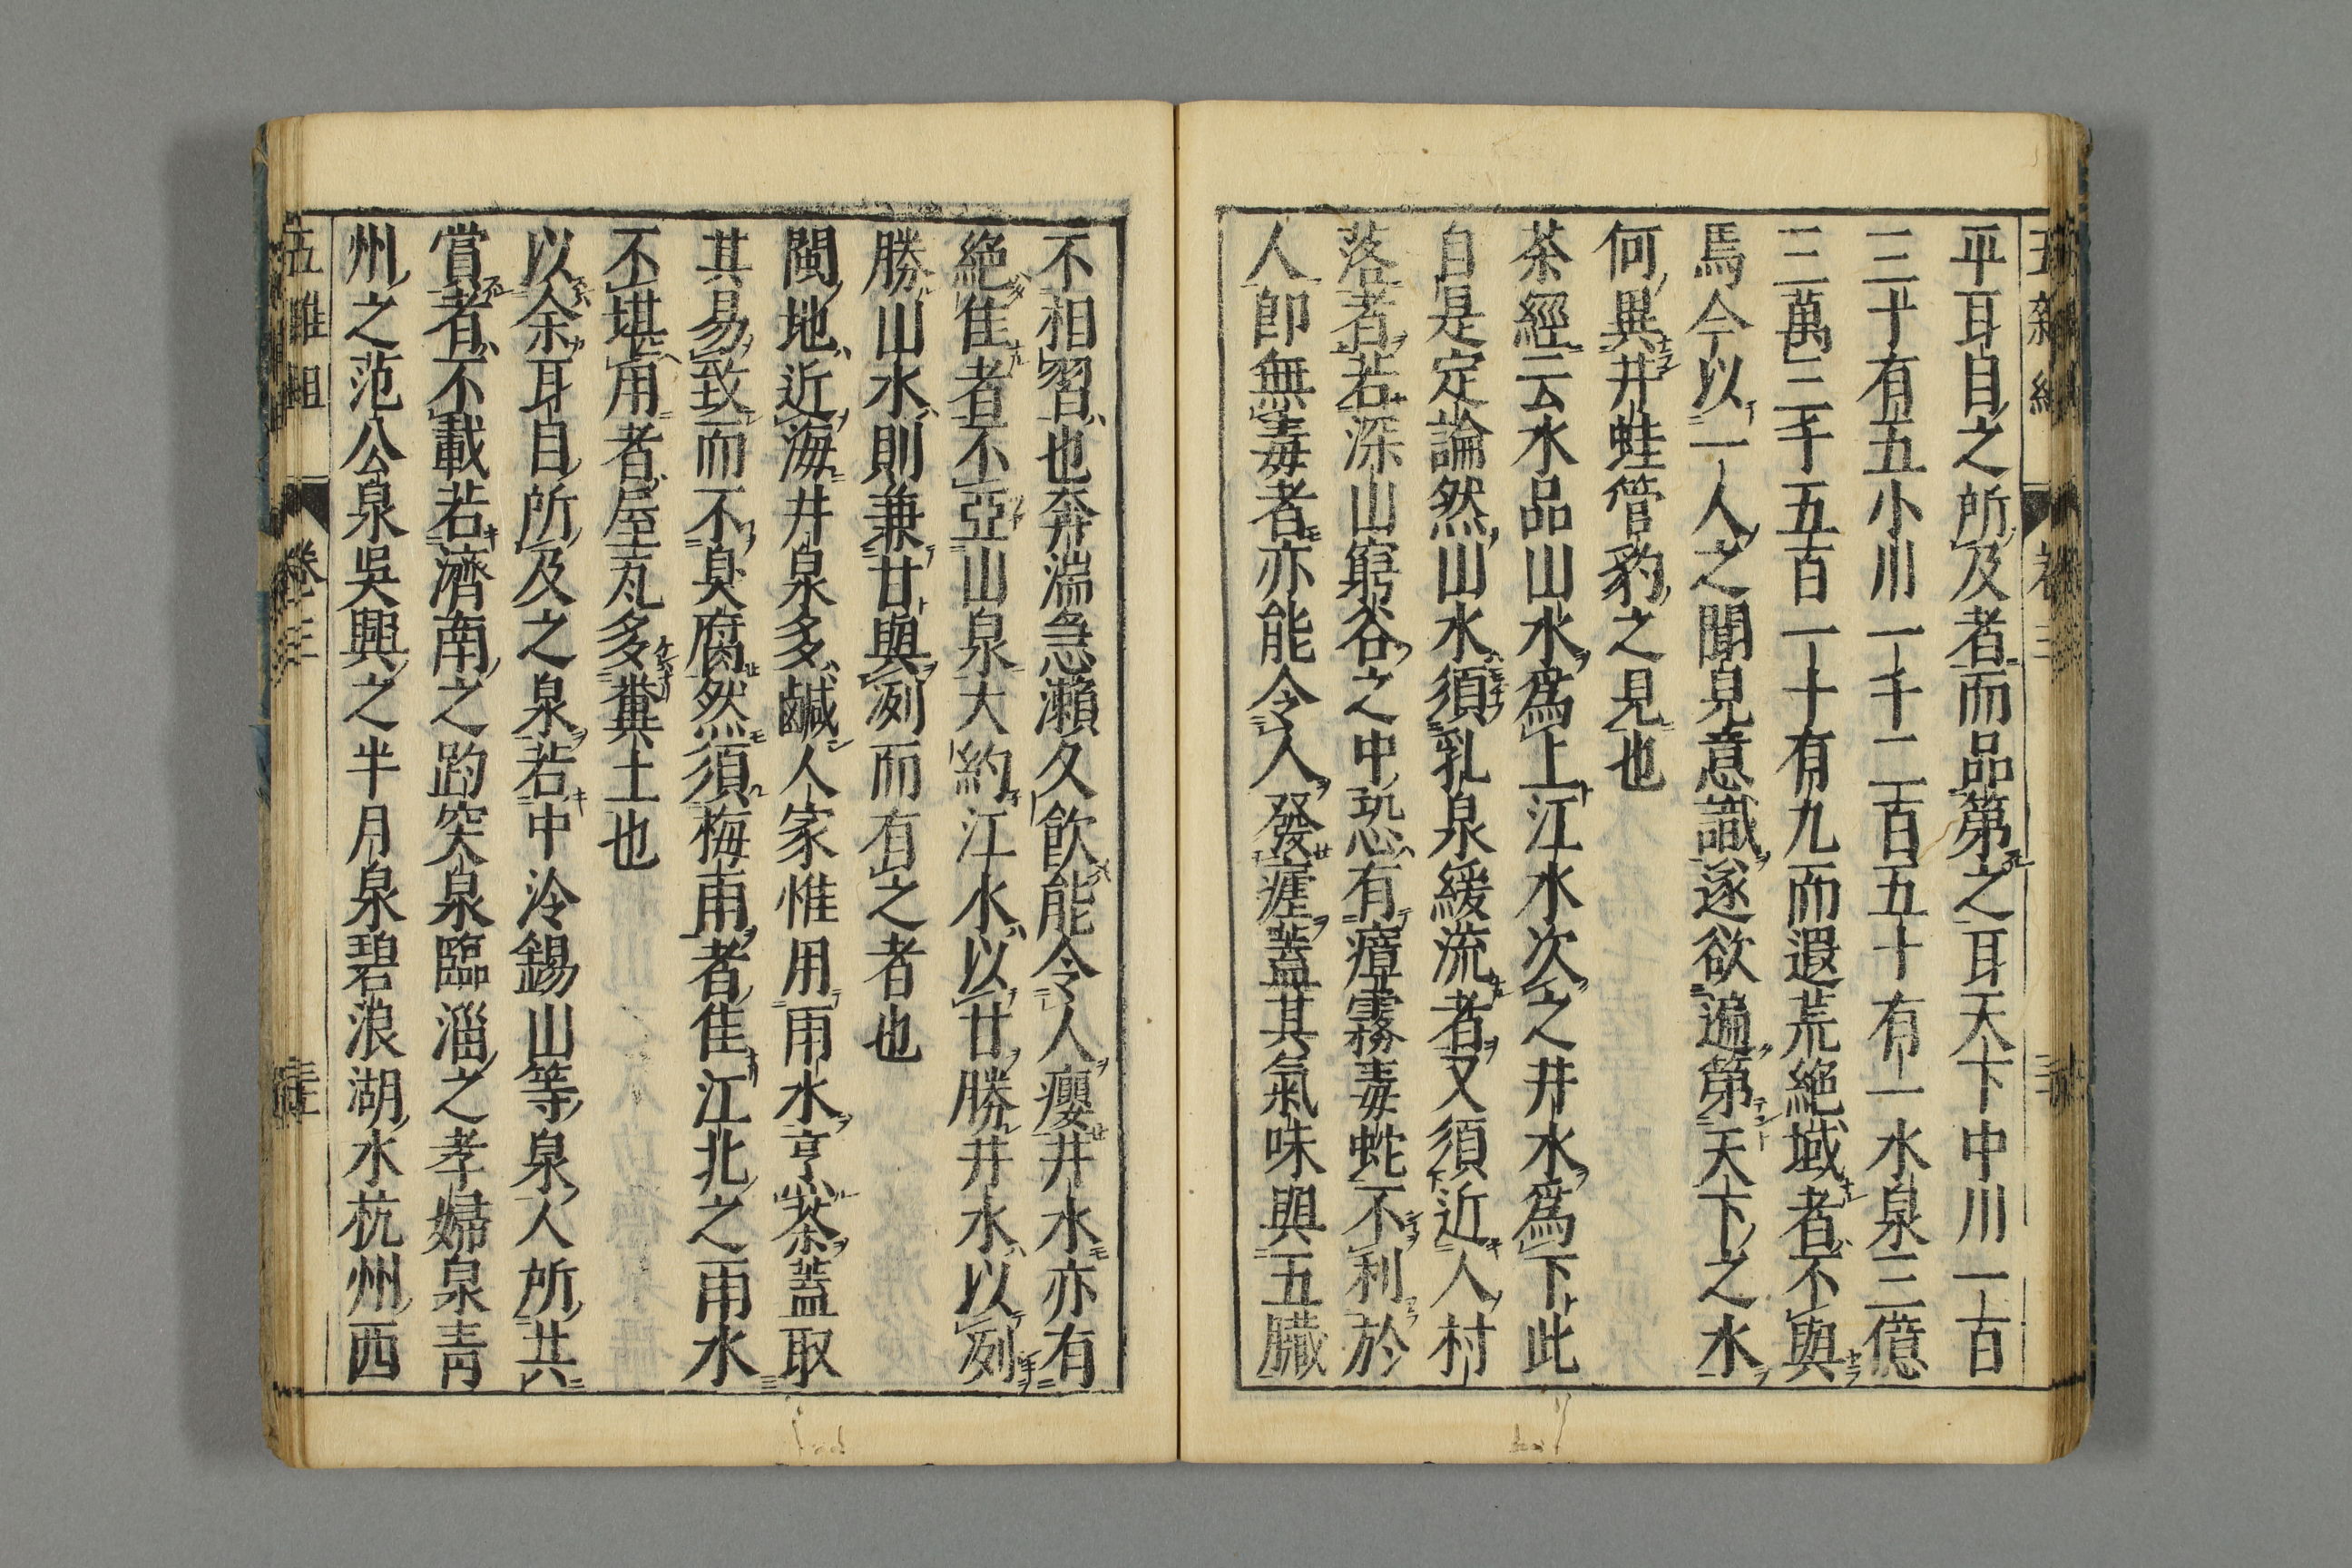 平耳目之所及者而品第之耳天下中川一百
三十有五小川一千二百五十有一水泉三億
三萬三千五百一十有九而遐荒絶域者不與
焉今以一人之聞見意識遂欲遍第天下之水
何異井蛙管豹之見也
茶經云水品山水爲上江水次之井水爲下此
自是定論然山水須乳泉緩流者又須近人村
落者若深山窮谷之中恐有瘴霧毒蛇不利於
人即無毒者亦能令人發瘧蓋其氣味與五臟
不相習也奔湍急瀨久飲能令人癭井水亦有
絶佳者不亞山泉大約江水以甘勝井水以冽
勝山水則兼甘與冽而有之者也
閩地近海井泉多鹹人家惟用雨水烹茶蓋取
其易致而不臭腐然須梅雨者佳江北之雨水
不堪用者屋瓦多糞土也
以余耳目所及之泉若中泠錫山等泉人所共
賞者不載若濟南之趵突泉臨淄之孝婦泉青
州之范公泉吳興之半月泉碧浪湖水杭州西
五雜組 卷三